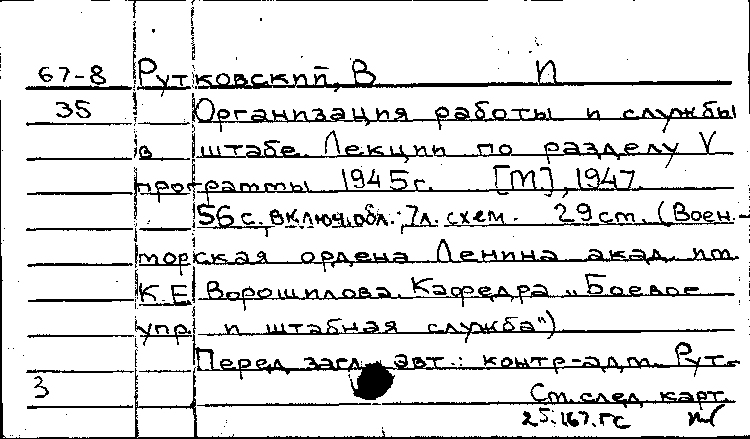 67-8 Рутковский, В П
35 Организация работы и службы
в штабе. Лекции по разделу V
программы 1945г. [М], 1947.
56 с. включ. обл.; 7л. схем. 29 см. (Воен.-
морская ордена Ленина акад. им.
К.Е Ворошилова. Кафедра „Боевое
упр. и штабная служба")
Перед загл. авт.: контр-адм. Рут-
3 См. след. карт.
25.167.ГС